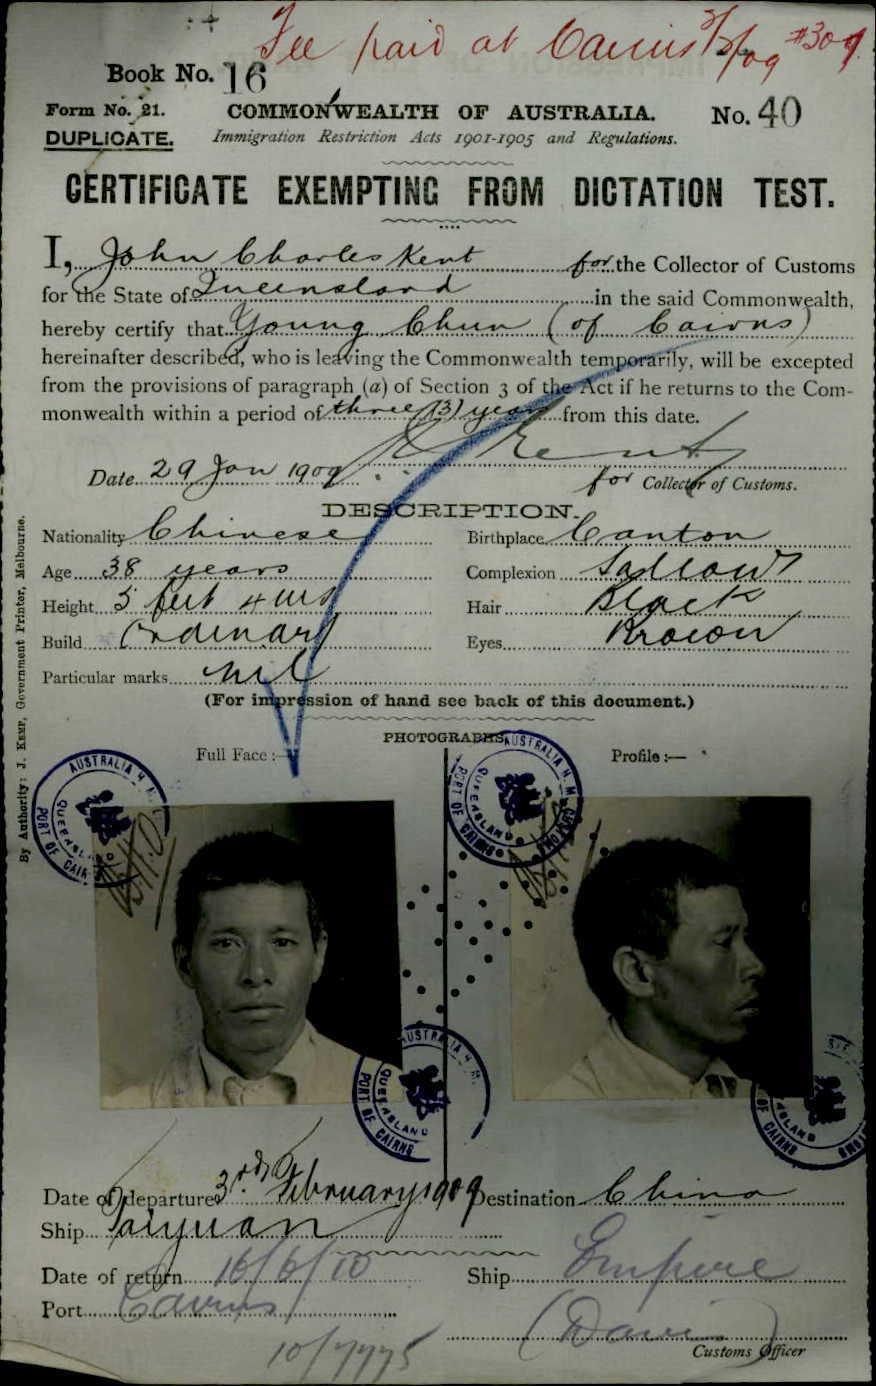 Fee paid at Cairns 3/2/09 #309
Book No. 16
Form No. 21. COMMONWEALTH OF AUSTRALIA. No. 40
DUPLICATE. Immigration Restriction Acts 1901-1905 and Regulations.
CERTIFICATE EXEMPTING FROM DICTATION TEST.
I, John Charles Kent for the Collector of Customs
for the State of Queensland in the said Commonwealth,
hereby certify that Young Chun (of Cairns)
hereinafter described, who is leaving the Commonwealth temporarily, will be excepted
from the provisions of paragraph (a) of Section 3 of the Act if he returns to the Com-
monwealth within a period of three (3) years from this date.
Kent
Date 29 Jan 1909 for Collector of Customs.
DESCRIPTION.
Nationality Chinese Birthplace Canton
Age 38 years Complexion Sallow
Height 5 feet 4 ins Hair Black
Build Ordinary Eyes Brown
Particular marks nil
(For impression of hand see back of this document.)
PHOTOGRAPHS
Full Face :— Profile :—
By Authority: J. Kemp, Government Printer, Melbourne.
AUSTRALIA H.M.
QUEENSLAND
PORT OF CAIRNS
AUSTRALIA H.M.
QUEENSLAND
PORT OF CAIRNS
AUSTRALIA H.M.
QUEENSLAND
PORT OF CAIRNS
QUEENSLAND
PORT OF CAIRNS
Date of departure 3rd February 1909 Destination China
Ship Taiyuan
Date of return 16/6/10 Ship Empire
Port Cairns
Customs Officer